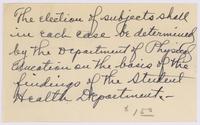 The election of subjects shall
in each case be determined
by the Department of Physical
Education on the basis of the
findings of the Student
Health Department.-